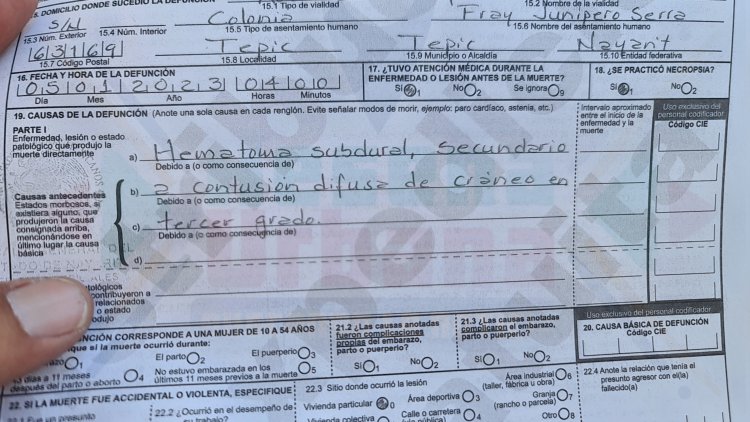 15. DOMICILIO DONDE SUCEDIÓ LA DEFUNCIÓN
15.1 Tipo de vialidad
15.2 Nombre de la vialidad
S/N Colonia Fray Junípero Serra
15.3 Núm. Exterior 15.4 Núm. Interior 15.5 Tipo de asentamiento humano 15.6 Nombre del asentamiento humano
63169 Tepic Tepic Nayarit
15.7 Código Postal 15.8 Localidad 15.9 Municipio o Alcaldía 15.10 Entidad federativa
16. FECHA Y HORA DE LA DEFUNCIÓN
05 01 2023 04 00
Día Mes Año Horas Minutos
17. ¿TUVO ATENCIÓN MÉDICA DURANTE LA ENFERMEDAD O LESIÓN ANTES DE LA MUERTE?
Sí 1 No 2 Se ignora 9
18. ¿SE PRACTICÓ NECROPSIA?
Sí 1 No 2
19. CAUSAS DE LA DEFUNCIÓN (Anote una sola causa en cada renglón. Evite señalar modos de morir, ejemplo: paro cardíaco, astenia, etc.)
Intervalo aproximado
entre el inicio de la
enfermedad y la
muerte
Uso exclusivo del
personal codificador
Código CIE
PARTE I
Enfermedad, lesión o estado
patológico que produjo la
muerte directamente
a) Hematoma subdural, Secundario
Debido a (o como consecuencia de)
Causas antecedentes
Estados morbosos, si
existiera alguno, que
produjeron la causa
consignada arriba,
mencionándose en
último lugar la causa
básica
b) a contusion difusa de cráneo en
Debido a (o como consecuencia de)
c) tercer grado.
Debido a (o como consecuencia de)
d)
contribuyeron a
relacionados
o estado
produjo
CORRESPONDE A UNA MUJER DE 10 A 54 AÑOS
que si la muerte ocurrió durante:
1 El parto 2 El puerperio 3
43 días a 11 meses
después del parto o aborto 4
No estuvo embarazada en los
últimos 11 meses previos a la muerte 5
21.2 ¿Las causas anotadas
fueron complicaciones
propias del embarazo,
parto o puerperio?
Sí 1 No 2
21.3 ¿Las causas anotadas
complicaron el embarazo,
parto o puerperio?
Sí 1 No 2
Uso exclusivo del personal codificador
20. CAUSA BÁSICA DE DEFUNCIÓN
Código CIE
22. SI LA MUERTE FUE ACCIDENTAL O VIOLENTA, ESPECIFIQUE
22.2 ¿Ocurrió en el desempeño de
su trabajo?
22.3 Sitio donde ocurrió la lesión
Vivienda particular 0 Área deportiva 3 Área industrial 6
(taller, fábrica u obra)
Vivienda colectiva Calle o carretera 4 Granja 7
(vía pública) (rancho o parcela)
Otro 8
22.4 Anote la relación que tenía el
presunto agresor con el(la)
fallecido(a)